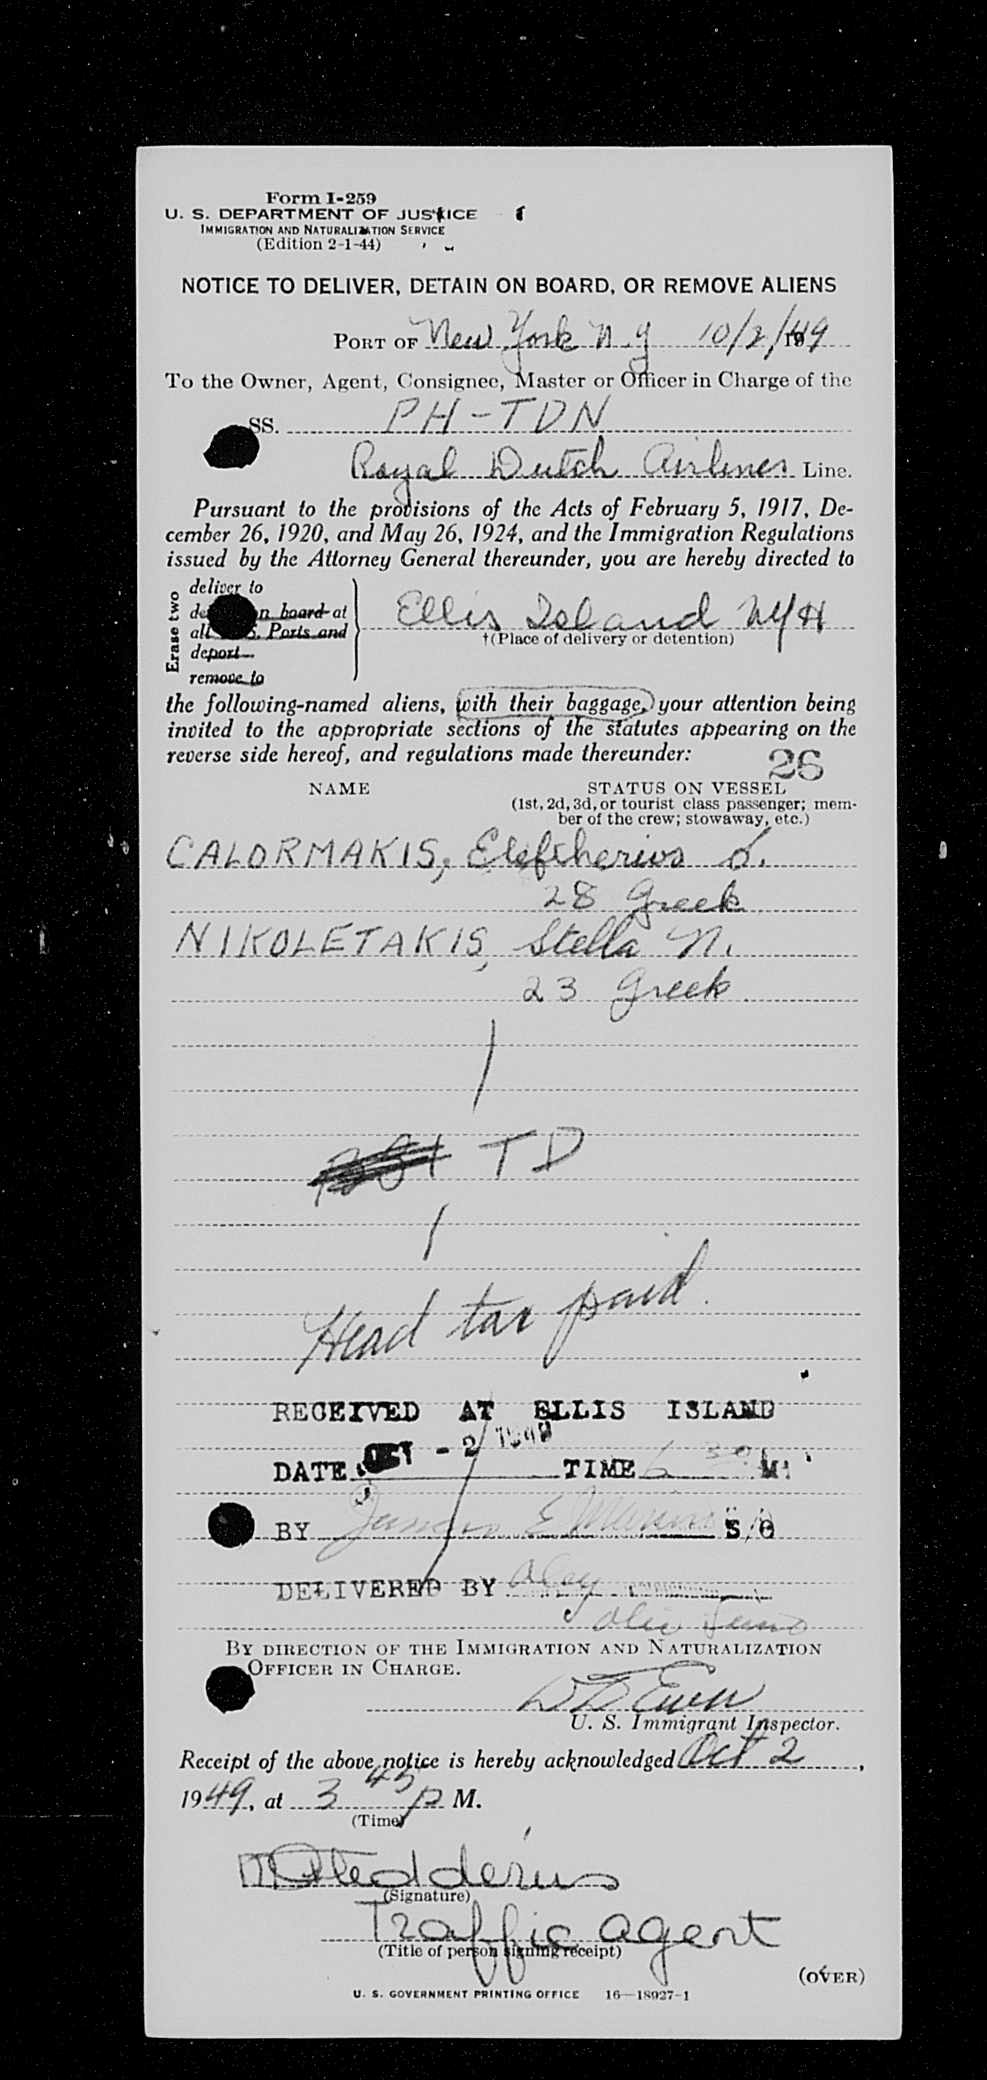 Form I-259
U. S. DEPARTMENT OF JUSTICE
IMMIGRATION AND NATURALIZATION SERVICE
(Edition 2-1-44)
NOTICE TO DELIVER, DETAIN ON BOARD, OR REMOVE ALIENS
PORT OF New York N.Y 10/2/1949
To the Owner, Agent, Consignee, Master or Officer in Charge of the
SS. PH-TDN
Royal Dutch Airlines Line.
Pursuant to the provisions of the Acts of February 5, 1917, De-
cember 26, 1920, and May 26, 1924, and the Immigration Regulations
issued by the Attorney General thereunder, you are hereby directed to
Erase two
deliver to
n board at
all Ports and
deport
remove to
Ellis Island NYH
†(Place of delivery or detention)
the following-named aliens, with their baggage, your attention being
invited to the appropriate sections of the statutes appearing on the
reverse side hereof, and regulations made thereunder:
26
NAME STATUS ON VESSEL
(1st, 2d, 3d, or tourist class passenger; mem-
ber of the crew; stowaway, etc.)
CALORMAKIS, Eleftherios
28 Greek
NIKOLETAKIS, Stella N.
23 Greek
TD
Head tax paid.
RECEIVED AT ELLIS ISLAND
DATE OCT - 2 1949 TIME 6 30 M.
BY S/O
DELIVERED BY
BY DIRECTION OF THE IMMIGRATION AND NATURALIZATION
OFFICER IN CHARGE.
U. S. Immigrant Inspector.
Receipt of the above notice is hereby acknowledged Oct 2,
1949, at 3 45 P M.
(Time)
(Signature)
Traffic agent
(Title of person signing receipt)
(OVER)
U. S. GOVERNMENT PRINTING OFFICE 16—18927-1